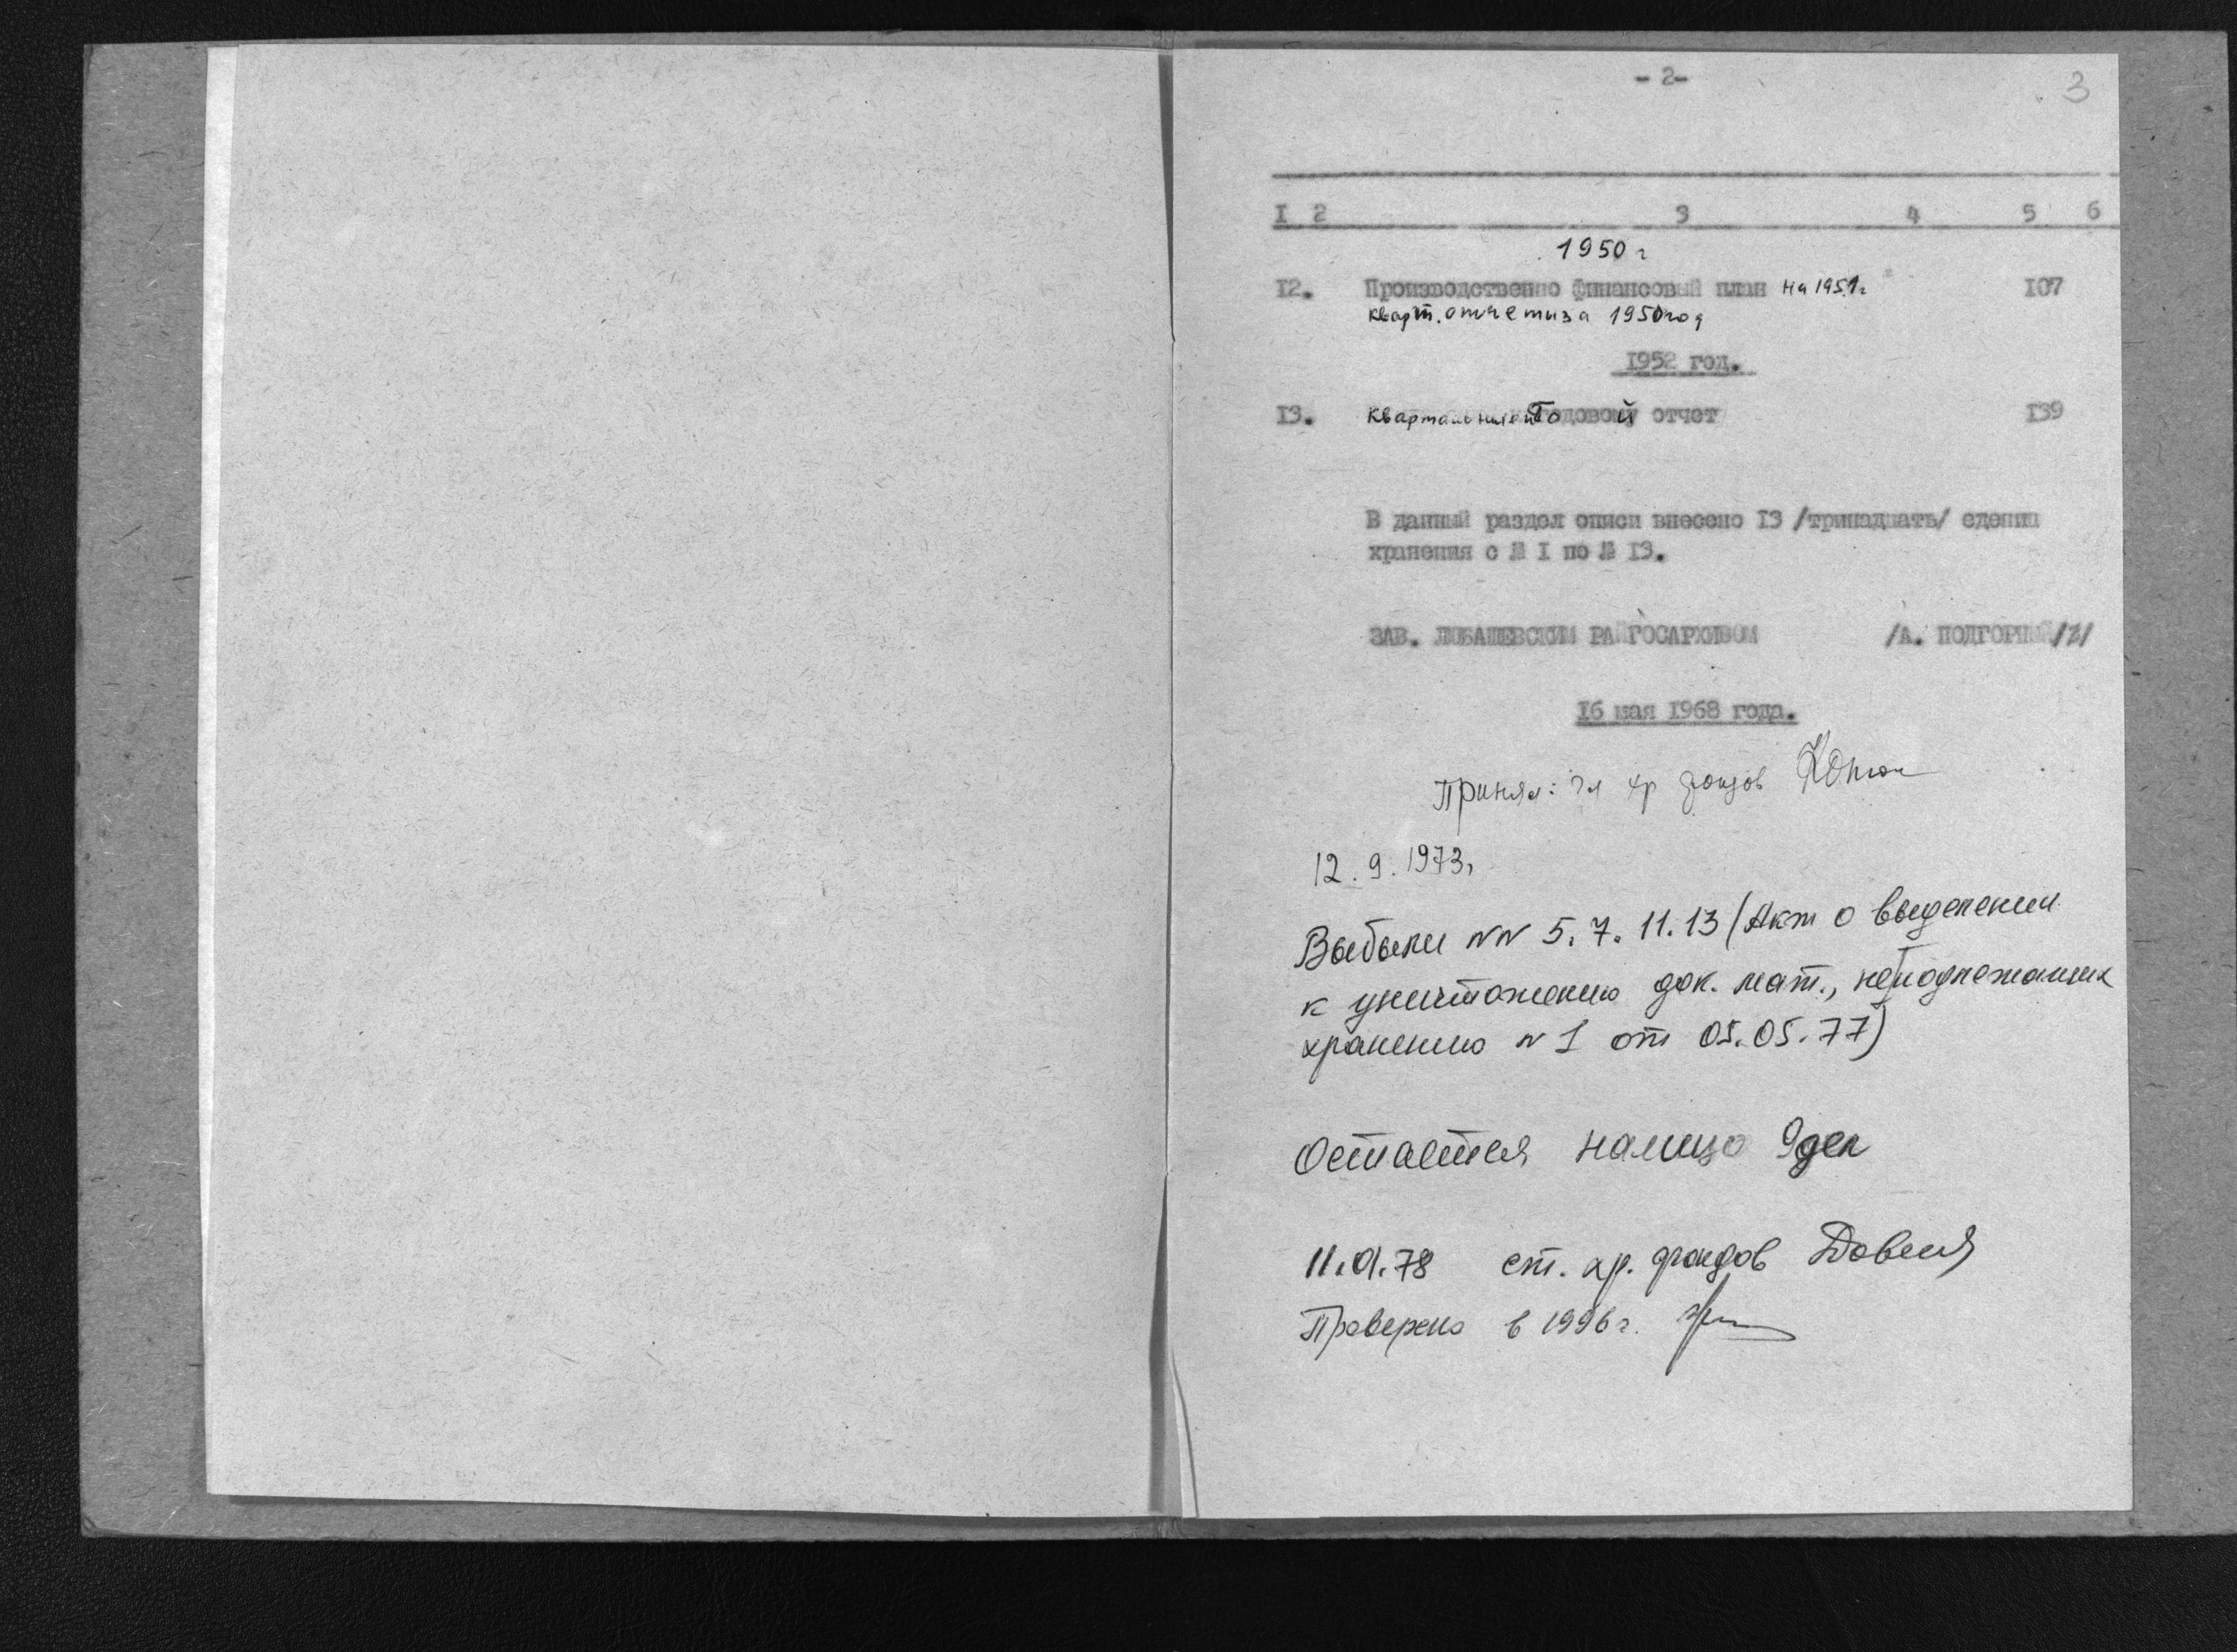 - 2 -
3
I 2 3 4 5 6
1950 г
12. Производственно финансовый план на 1951г 107
кварт. отчеты за 1950 год
1952 год.
13. Квартальные и Годовой отчет 139
В данный раздел описи внесено 13 /тринадцать/ едениц
хранения с № I по № 13.
ЗАВ. ЛЮБАШЕВСКИМ РАЙГОСАРХИВОМ /А. ПОДГОРНЫЙ/
16 мая 1968 года.
Принял: гл хр фондов
12.9.1973г
Выбыли №№ 5.7.11.13 (Акт о выделении
к уничтожению док. мат., неподлежащих
хранению №1 от 05.05.77)
Остается налицо 9 дел
11.01.78 ст. хр. фондов
Проверено в 1996г.